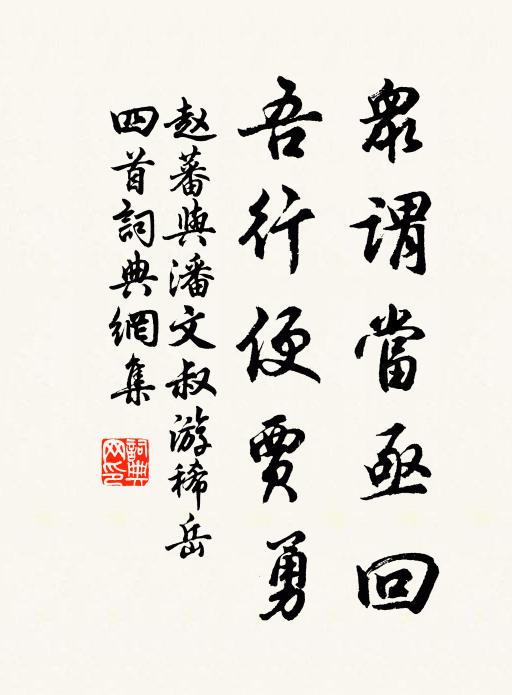 衆謂當亟回
吾行便賈勇
赵蕃與潘文叔游稀岳
四首詞典網集
詞典
网印